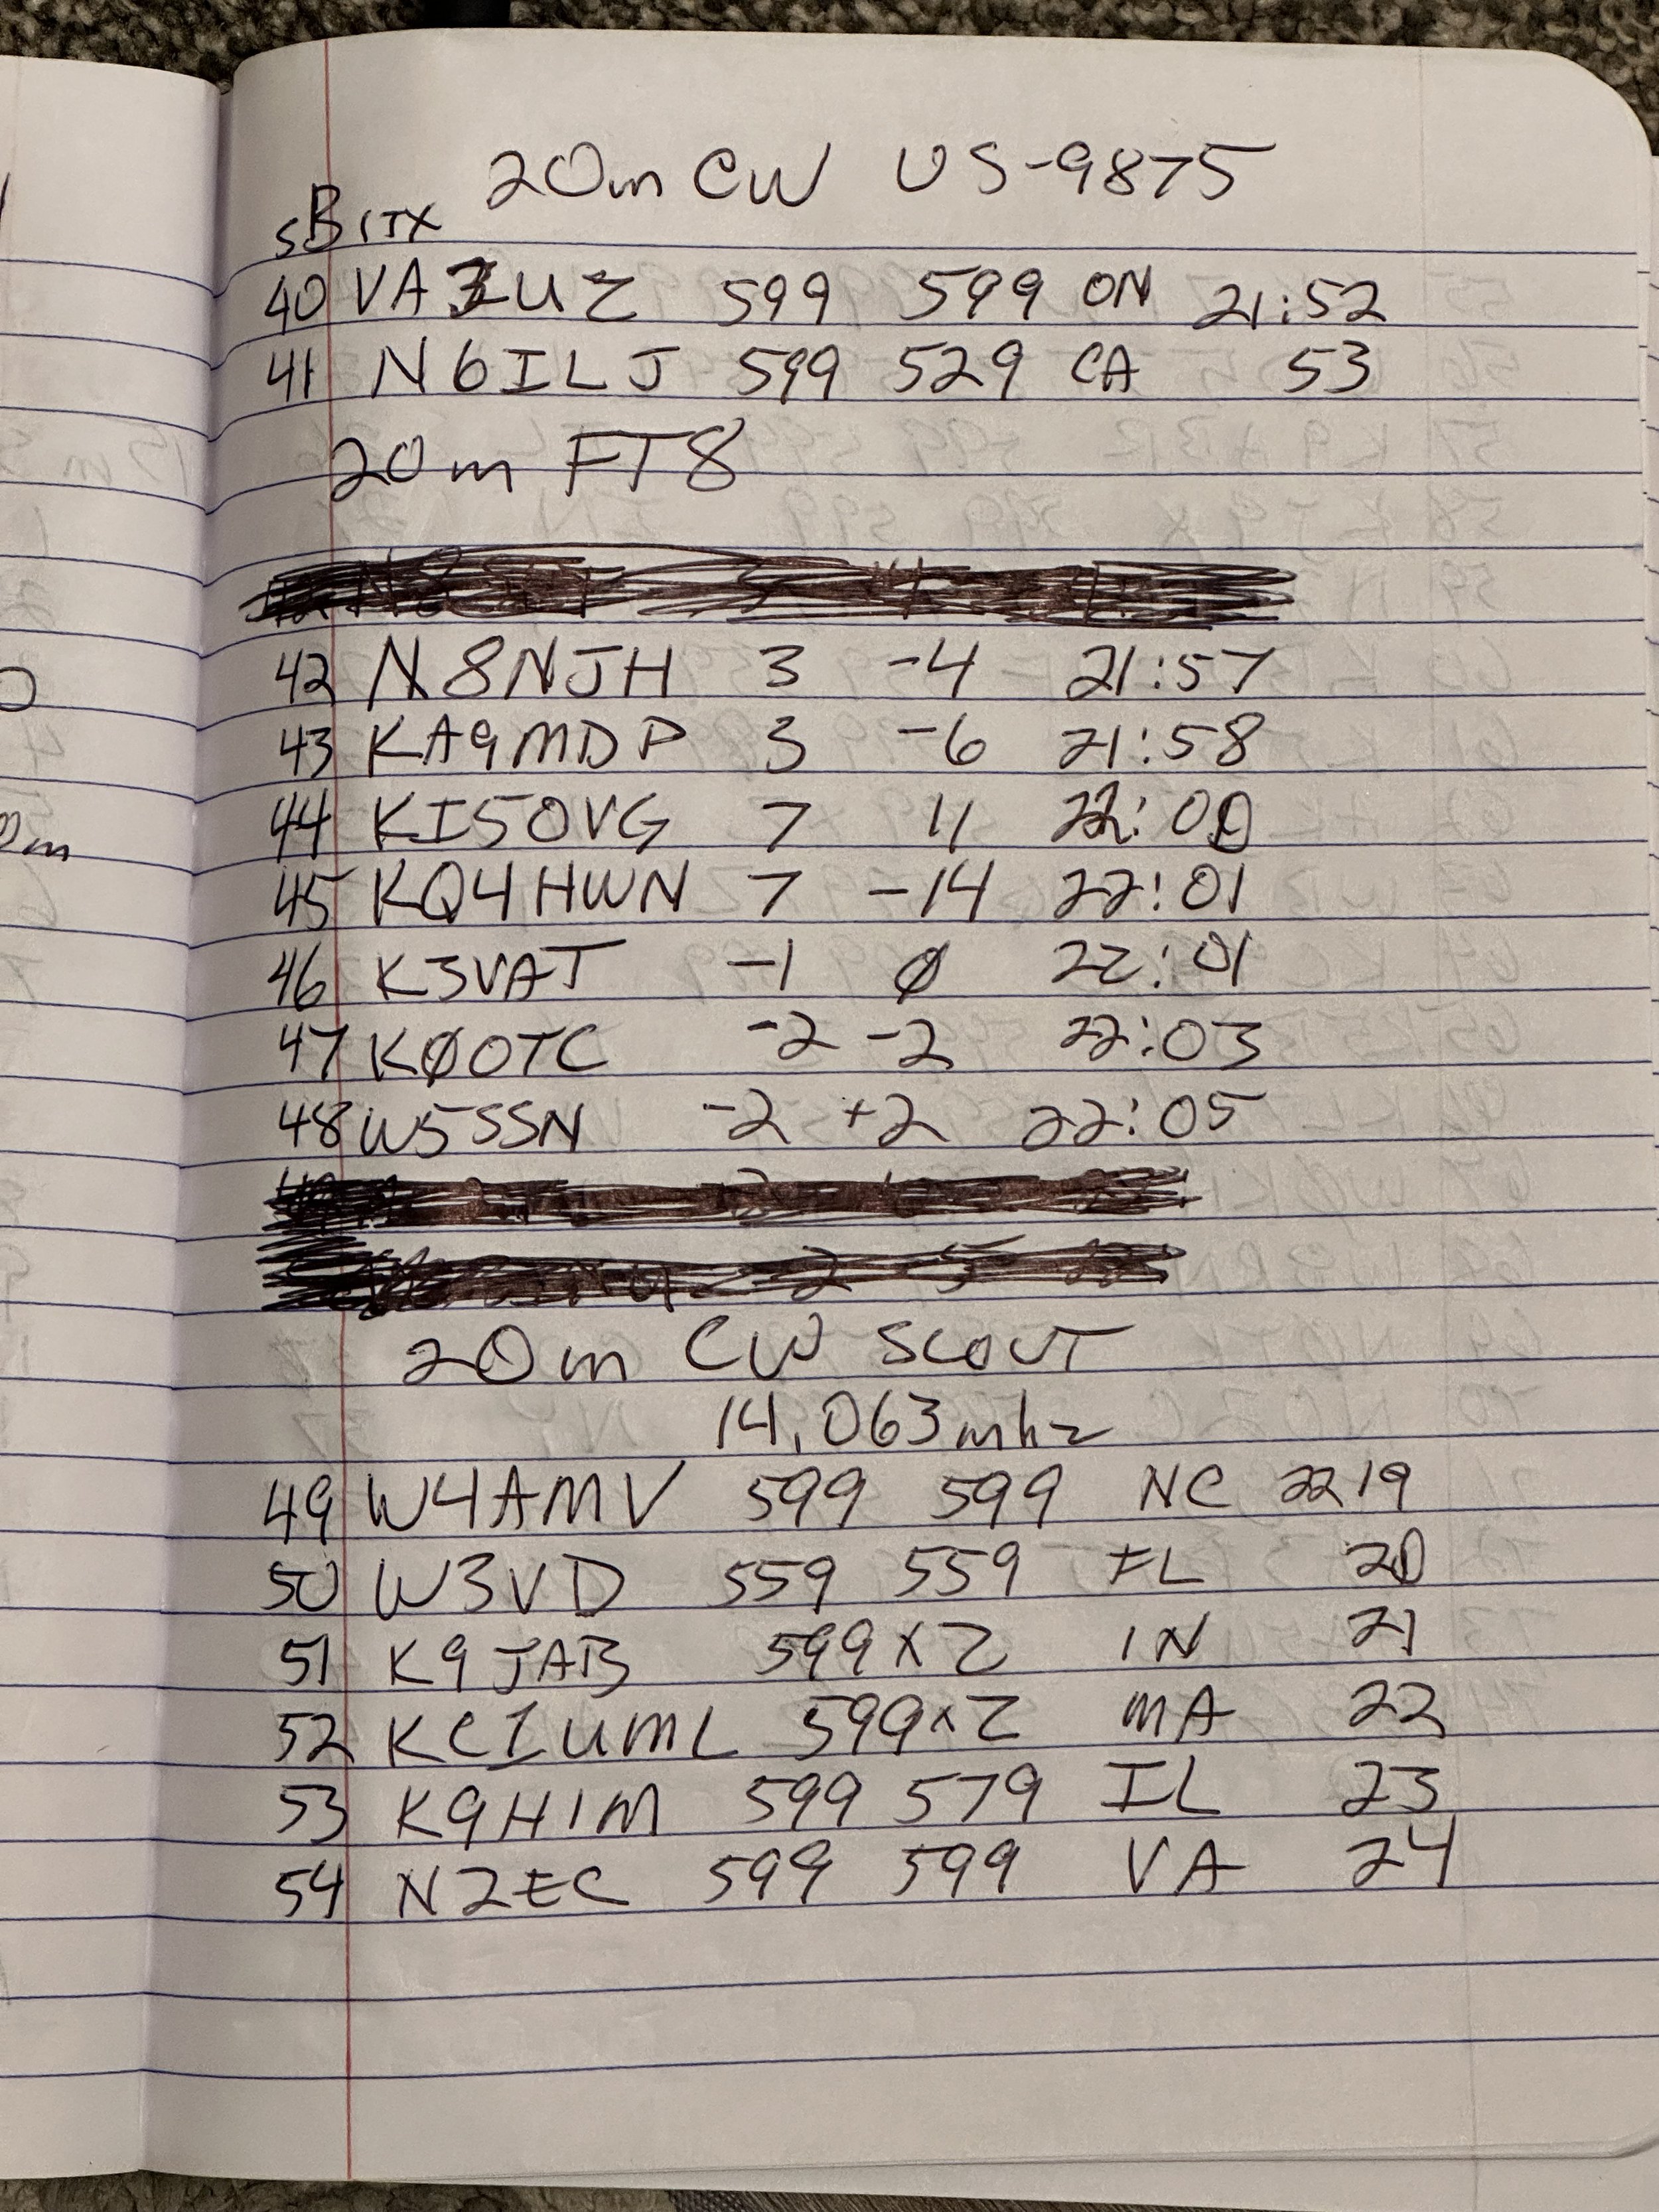 20m CW US-9875
sBITX
40 VA3UZ 599 599 ON 21:52
41 N6ILJ 599 529 CA 53
20m FT8
42 N8NJH 3 -4 21:57
43 KA9MDP 3 -6 21:58
44 KI5OVG 7 11 22:00
45 KQ4HWN 7 -14 22:01
46 K3VAT -1 Ø 22:01
47 KØOTC -2 -2 22:03
48 W5SSN -2 +2 22:05
20m CW SCOUT
14.063mhz
49 W4AMV 599 599 NC 2219
50 W3VD 559 559 FL 20
51 K9JAB 599x2 IN 21
52 KC1UML 599x2 MA 22
53 K9HIM 599 579 IL 23
54 N2EC 599 599 VA 24